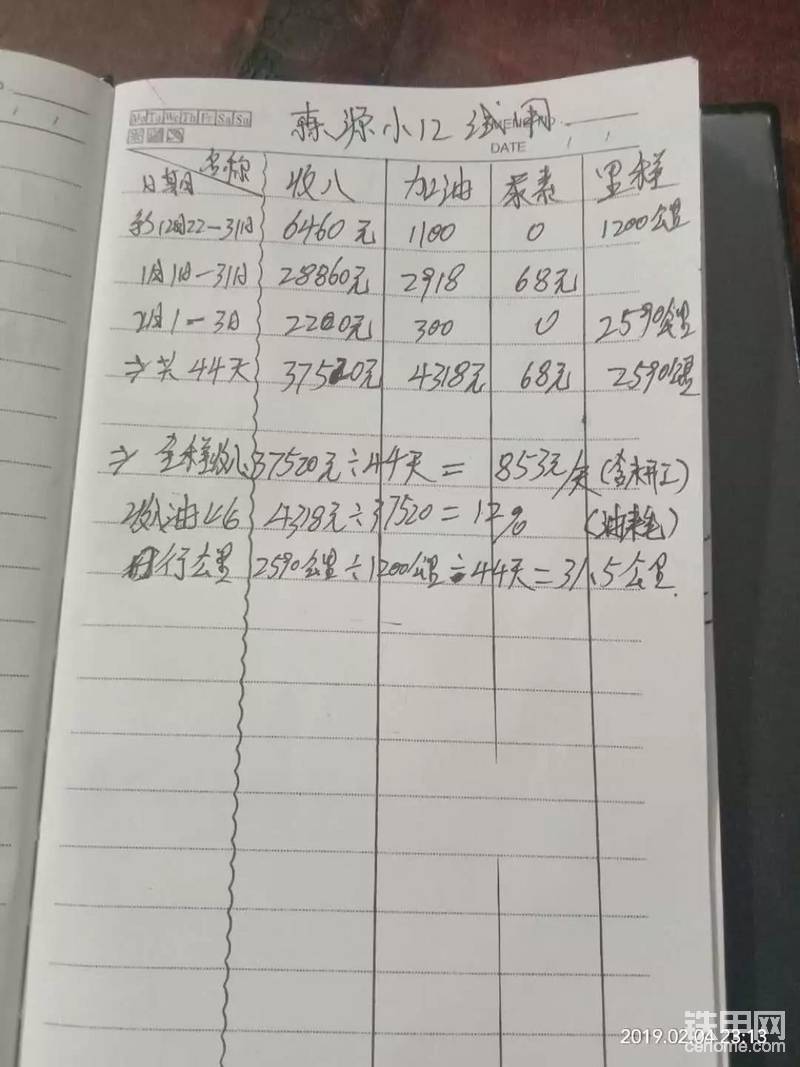 Mo Tu We Th Fr Sa Su
森源小12试用
MEMO NO.
DATE / /
名称
日期 收入 加油 尿素 里程
12月22-31日 6460元 1100 0 1200公里
1月1日-31日 28860元 2918 68元
2月1-3日 2200元 300 0 2590公里
⇒共44天 37520元 4318元 68元 2590公里
⇒ 37520元÷44天= 853元/天(含未开工)
油 4318元÷37520=12% (油耗)
日行公里 2590公里÷1200公里÷44天=31.5公里
2019.02.04 23:13
铁甲网
cehome.com